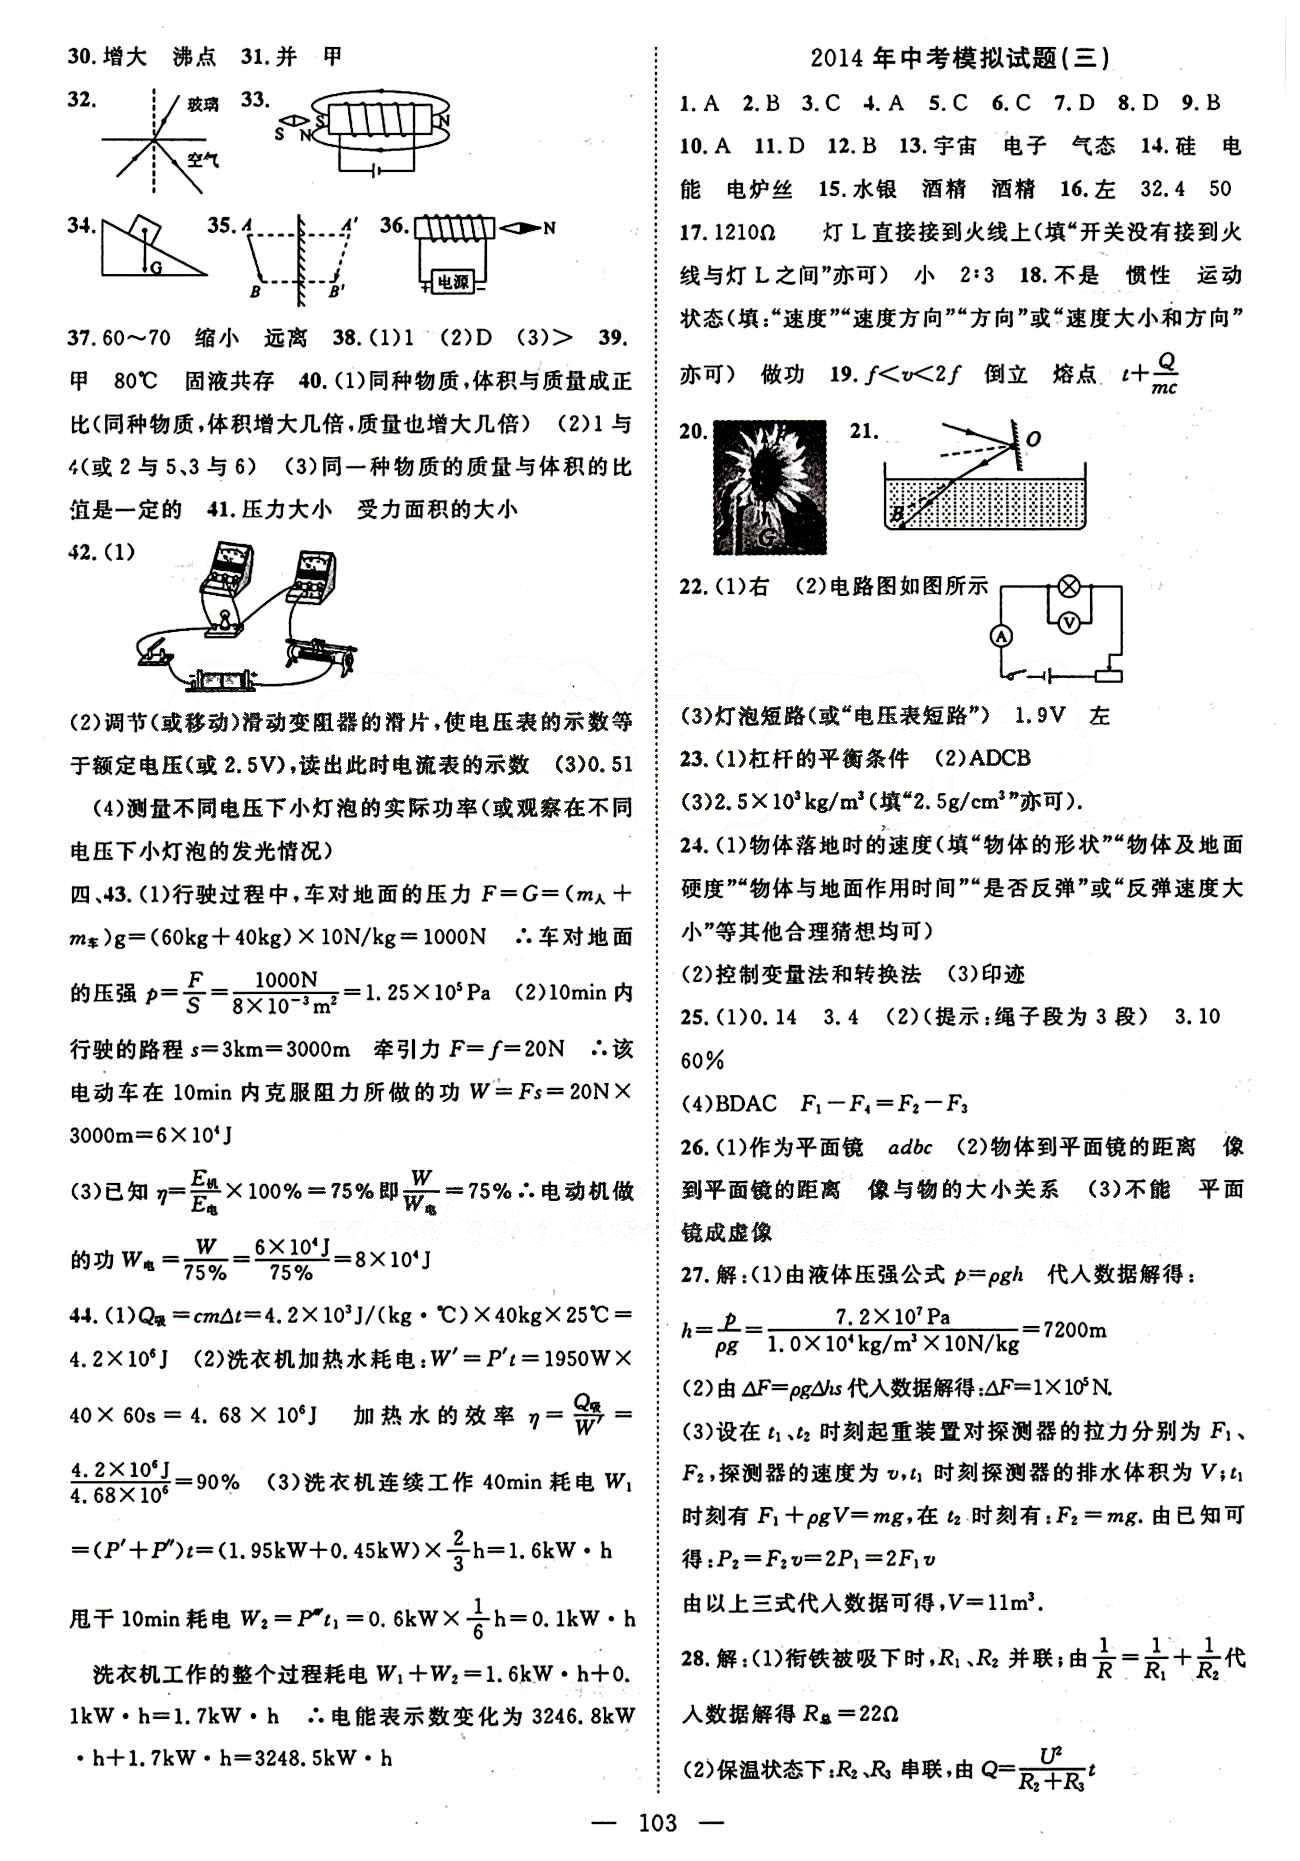 30.增大 沸点 31.并 甲
32. 玻璃 空气 33. S N S N
34. G 35. A A′ B B′ 36. N + 电源 -
37.60～70 缩小 远离 38.(1)1 (2)D (3)＞ 39.
甲 80℃ 固液共存 40.(1)同种物质,体积与质量成正
比(同种物质,体积增大几倍,质量也增大几倍) (2)1与
4(或2与5、3与6) (3)同一种物质的质量与体积的比
值是一定的 41.压力大小 受力面积的大小
42.(1)
(2)调节(或移动)滑动变阻器的滑片,使电压表的示数等
于额定电压(或2.5V),读出此时电流表的示数 (3)0.51
(4)测量不同电压下小灯泡的实际功率(或观察在不同
电压下小灯泡的发光情况)
四、43.(1)行驶过程中,车对地面的压力 F=G=(m人+
m车)g=(60kg+40kg)×10N/kg=1000N ∴车对地面
的压强 p=F/S=1000N/8×10⁻³m²=1.25×10⁵Pa (2)10min内
行驶的路程 s=3km=3000m 牵引力 F=f=20N ∴该
电动车在10min内克服阻力所做的功 W=Fs=20N×
3000m=6×10⁴J
(3)已知 η=E机/E电×100%=75%即W/W电=75%∴电动机做
的功 W电=W/75%=6×10⁴J/75%=8×10⁴J
44.(1)Q吸=cmΔt=4.2×10³J/(kg·℃)×40kg×25℃=
4.2×10⁶J (2)洗衣机加热水耗电:W′=P′t=1950W×
40×60s=4.68×10⁶J 加热水的效率 η=Q吸/W′=
4.2×10⁶J/4.68×10⁶=90% (3)洗衣机连续工作40min耗电 W₁
=(P′+P″)t=(1.95kW+0.45kW)×2/3h=1.6kW·h
甩干10min耗电 W₂=P‴t₁=0.6kW×1/6h=0.1kW·h
洗衣机工作的整个过程耗电 W₁+W₂=1.6kW·h+0.
1kW·h=1.7kW·h ∴电能表示数变化为3246.8kW
·h+1.7kW·h=3248.5kW·h
2014年中考模拟试题(三)
1.A 2.B 3.C 4.A 5.C 6.C 7.D 8.D 9.B
10.A 11.D 12.B 13.宇宙 电子 气态 14.硅 电
能 电炉丝 15.水银 酒精 酒精 16.左 32.4 50
17.1210Ω 灯L直接接到火线上(填“开关没有接到火
线与灯L之间”亦可) 小 2:3 18.不是 惯性 运动
状态(填:“速度”“速度方向”“方向”或“速度大小和方向”
亦可) 做功 19.f<v<2f 倒立 熔点 t+Q/mc
20. G 21. O B
22.(1)右 (2)电路图如图所示 A V
(3)灯泡短路(或“电压表短路”) 1.9V 左
23.(1)杠杆的平衡条件 (2)ADCB
(3)2.5×10³kg/m³(填“2.5g/cm³”亦可).
24.(1)物体落地时的速度(填“物体的形状”“物体及地面
硬度”“物体与地面作用时间”“是否反弹”或“反弹速度大
小”等其他合理猜想均可)
(2)控制变量法和转换法 (3)印迹
25.(1)0.14 3.4 (2)(提示:绳子段为3段) 3.10
60%
(4)BDAC F₁-F₄=F₂-F₃
26.(1)作为平面镜 adbc (2)物体到平面镜的距离 像
到平面镜的距离 像与物的大小关系 (3)不能 平面
镜成虚像
27.解:(1)由液体压强公式 p=ρgh 代入数据解得:
h=p/ρg=7.2×10⁷Pa/1.0×10⁴kg/m³×10N/kg=7200m
(2)由 ΔF=ρgΔhs 代入数据解得:ΔF=1×10⁵N.
(3)设在 t₁、t₂ 时刻起重装置对探测器的拉力分别为 F₁、
F₂,探测器的速度为 v,t₁ 时刻探测器的排水体积为 V;t₁
时刻有 F₁+ρgV=mg,在 t₂ 时刻有:F₂=mg.由已知可
得:P₂=F₂v=2P₁=2F₁v
由以上三式代入数据可得,V=11m³.
28.解:(1)衔铁被吸下时,R₁、R₂ 并联;由1/R=1/R₁+1/R₂代
入数据解得 R总=22Ω
(2)保温状态下:R₂、R₃ 串联,由 Q=U²/R₂+R₃ t
— 103 —